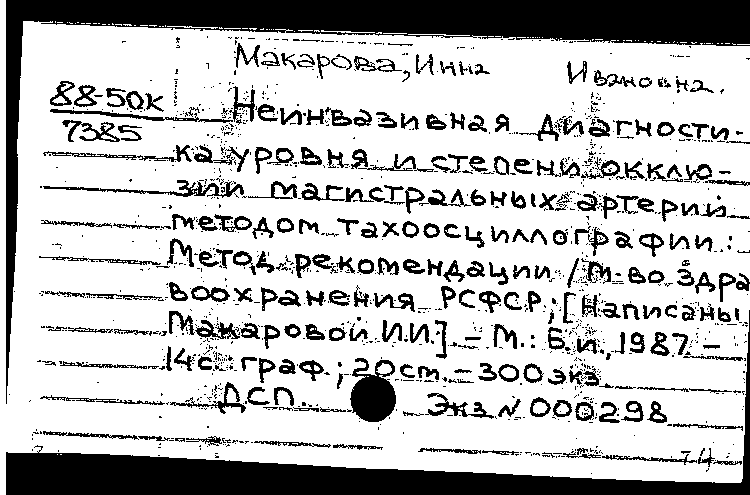 Макарова, Инна Ивановна.
88-50к
7385
Неинвазивная диагности-
ка уровня и степени окклю-
зии магистральных артерий
методом тахоосциллографии :
Метод. рекомендации / М-во здра
воохранения РСФСР; [Написаны
Макаровой И.И.]. – М.: Б.и., 1987. –
14с. граф.; 20cm. – 300 экз.
ДСП. Экз № 000298